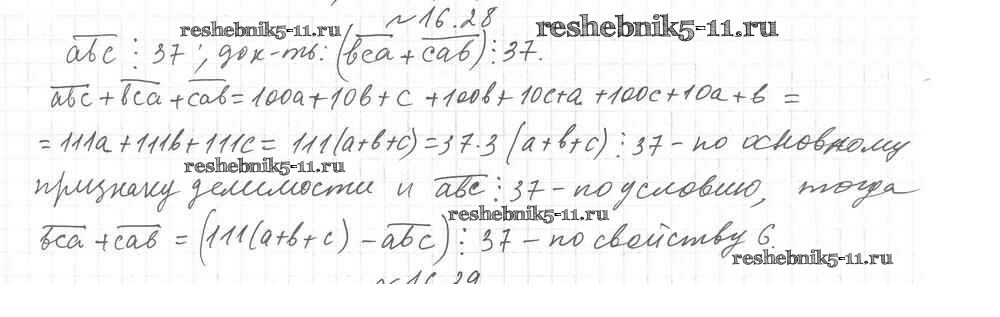 №16.28
reshebnik5-11.ru
reshebnik5-11.ru
abc ⋮ 37; док-ть: (bca + cab) ⋮ 37.
abc + bca + cab = 100a + 10b + c + 100b + 10c + a + 100c + 10a + b =
= 111a + 111b + 111c = 111(a+b+c) = 37·3 (a+b+c) ⋮ 37 - по основному
reshebnik5-11.ru
признаку делимости и abc ⋮ 37 - по условию, тогда
reshebnik5-11.ru
bca + cab = (111(a+b+c) - abc) ⋮ 37 - по свойству 6.
reshebnik5-11.ru
№16.29